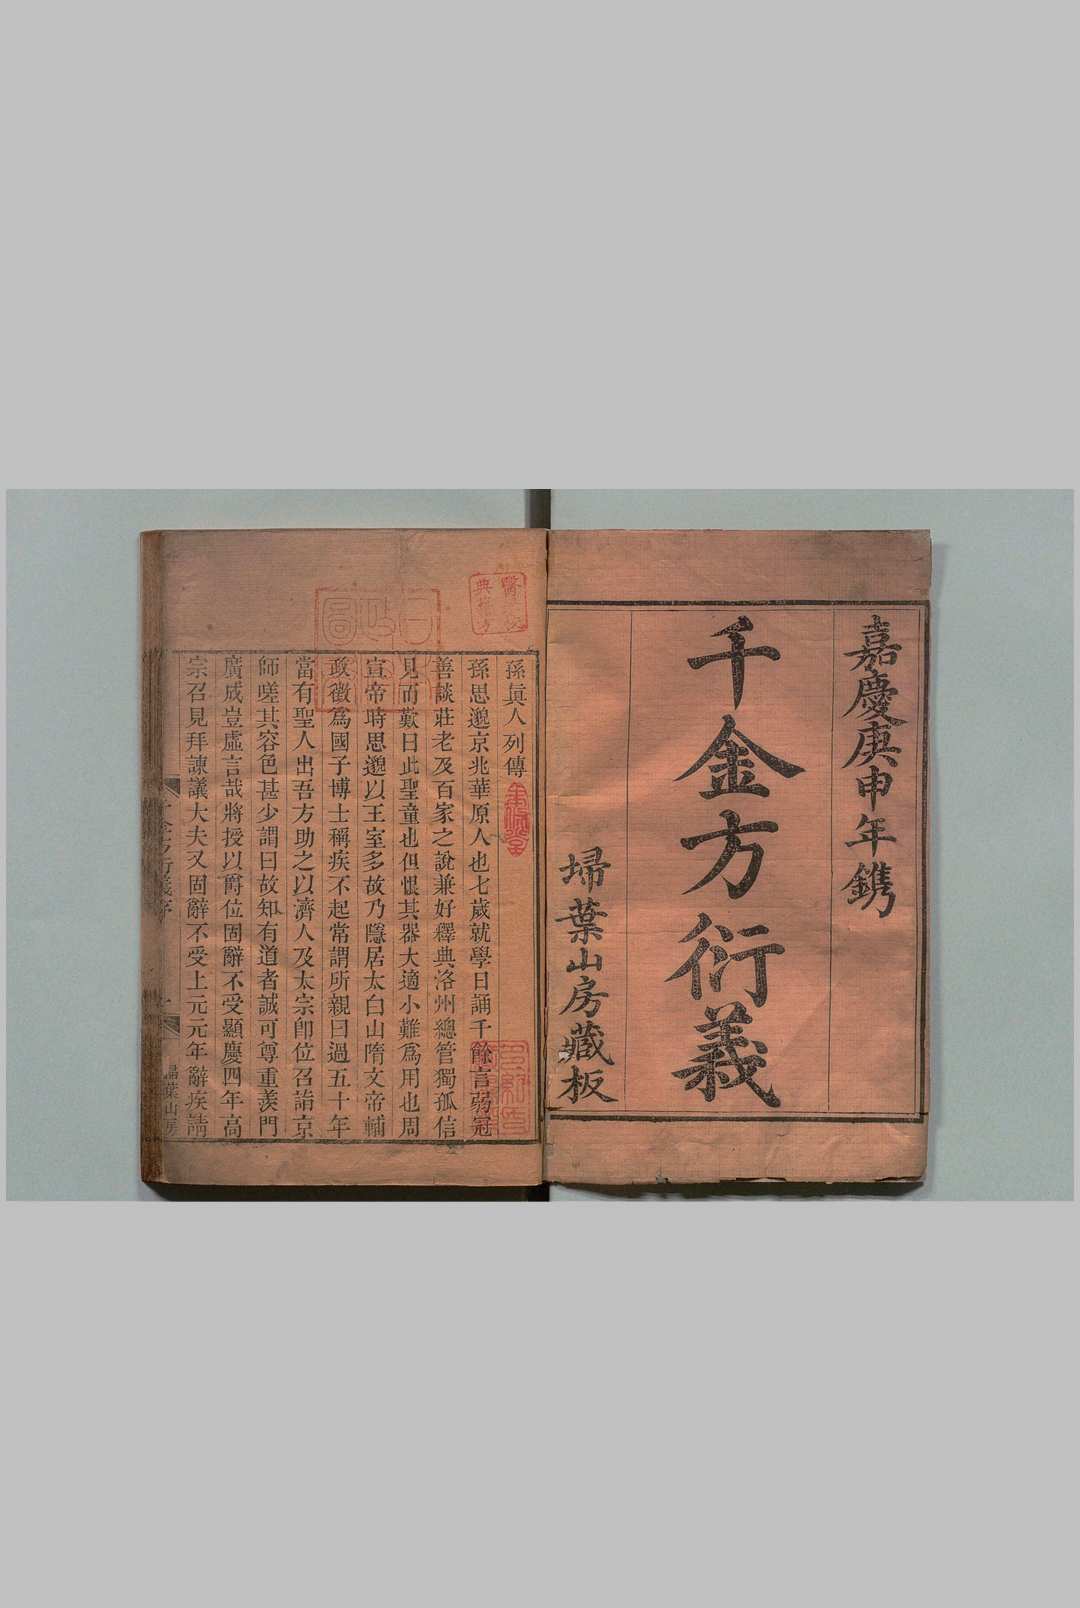 嘉慶庚申年鐫
千金方衍義
埽葉山房藏板
孫眞人列傳
孫思邈京兆華原人也七歲就學日誦千餘言弱冠
善談莊老及百家之說兼好釋典洛州總管獨孤信
見而歎曰此聖童也但恨其器大適小難爲用也周
宣帝時思邈以王室多故乃隱居太白山隋文帝輔
政徵爲國子博士稱疾不起常謂所親曰過五十年
當有聖人出吾方助之以濟人及太宗卽位召詣京
師嗟其容色甚少謂曰故知有道者誠可尊重羨門
廣成豈虛言哉將授以爵位固辭不受顯慶四年高
宗召見拜諫議大夫又固辭不受上元元年辭疾請
千金方衍義序
埽葉山房